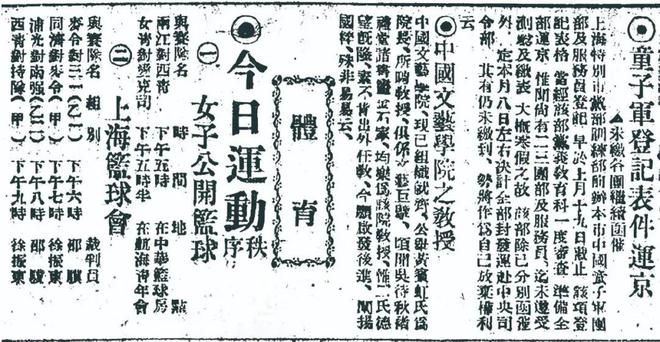 童子軍登記表件運京
▲未繳各團繼續函催
上海特別市黨部訓練部所辦本市中國童子軍團
部及服務員登記、早於上月十九日截止、該項登
記表格、當經該部黨義教育科一度審查、準備全
部運京、惟聞尚有二三團部及服務員、迄未遵受
測驗及繳表、大概寒假之故、該部除已分別函催
外、定本月八日左右決計全部封發運赴中央司
令部、其有仍未繳到、勢將作爲自己放棄權利
云、
中國文藝學院之敎授
中國文藝學院、現已組織就緒、公舉黃賓虹氏爲
院長、所聘敎授、俱係藝巨擘、頃聞吳待秋
諸書畫名家、均樂爲該院敎授、惟二氏德
望旣隆、素不肯出外任敎、今願啟發後進、闡揚
國粹、殊非易易云、
體育
今日運動秩序
㊀女子公開籃球
與賽隊名 時間 地點
兩江對西青 下午五時 在中華籃球房
女青對務克司 下午五時半 在航海青年會
㊁上海籃球會
與賽隊名 組別 裁判員
麥令對三一(乙一) 下午六時 邵驥
浦光對南强(乙二) 下午八時 邵驥
同濟對麥令(甲) 下午七時 徐振東
西青對持隊(甲) 下午九時 徐振東